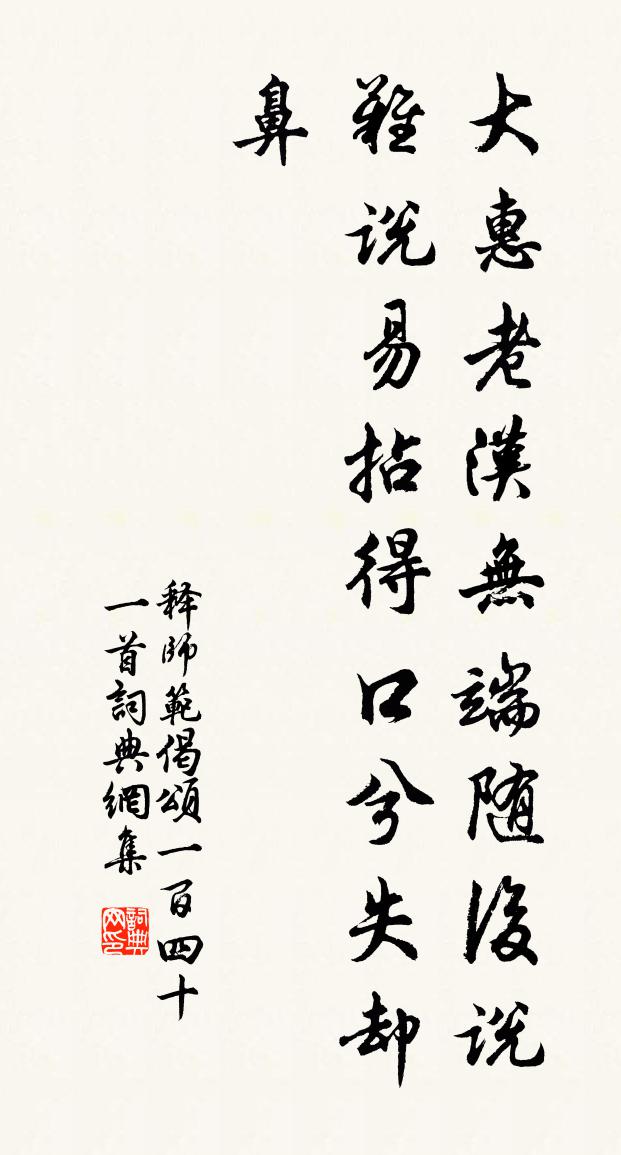 大惠老漢無端随後说
難说易拈得口兮失却
鼻
释師範偈頌一百四十
一首詞典網集
詞典网印